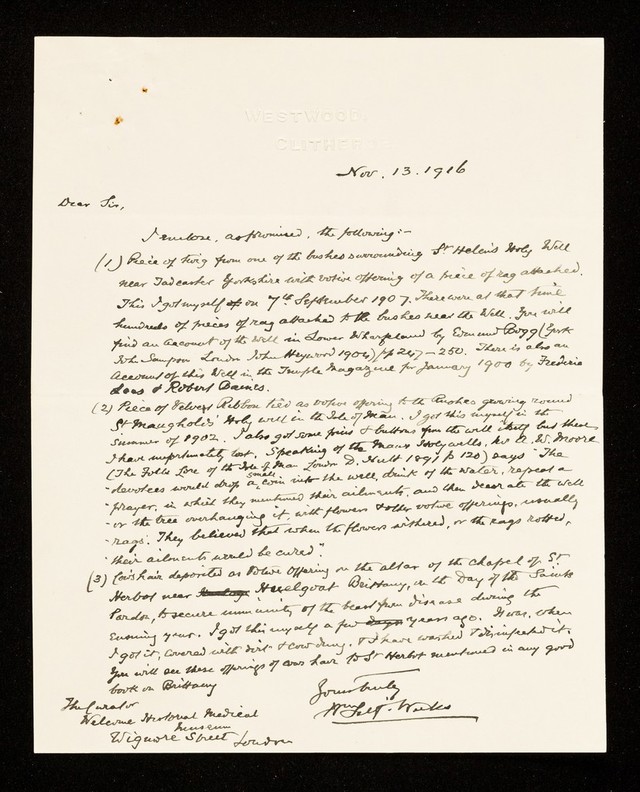 WESTWOOD,
CLITHEROE
Nov. 13. 1916
Dear Sir,
I enclose, as promised, the following :-
(1) Piece of twig from one of the bushes surrounding St Helen's Holy Well
near Tadcaster Yorkshire with votive offering of a piece of rag attached.
This I got myself on 7th September 1907. There were at that time
hundreds of pieces of rag attached to the bushes near the Well. You will
find an account of the well in Lower Wharfeland by Edmund Bogg (York
John Sampson London John Heywood 1904) pp 247-250. There is also an
account of this Well in the Temple Magazine for January 1900 by Frederic
Lees & Robert Baines.
(2) Piece of Velvet Ribbon tied as votive offering to the Bushes growing round
St Maughold's Holy well in the Isle of Man. I got this myself in the
summer of 1902. I also got some pins & buttons from the well itself but these
I have unfortunately lost. Speaking of the Manx Holy wells, Mr A. W. Moore
(The Folk Lore of the Isle of Man London D. Nutt 1891 p 120) says "The
"devotees would drop a small coin into the well, drink of the water, repeat a
"prayer, in which they mentioned their ailments, and then decorate the well
"or the tree overhanging it, with flowers & other votive offerings, usually
"rags. They believed that when the flowers withered, or the rags rotted,
"their ailments would be cured".
(3) Cow's hair deposited as Votive Offering on the altar of the chapel of St
Herbot near Huelgoat Brittany, on the Day of the Saint's
Pardon, to secure immunity of the beast from disease during the
ensuing year. I got this myself a few years ago. It was, when
I got it, covered with dirt & cow dung, & I have washed & disinfected it.
You will see these offerings of cows hair to St Herbot mentioned in any good
book on Brittany
Yours truly
Wm Self Weeks
The Curator
Welcome Historical Medical
Museum
Wigmore Street London